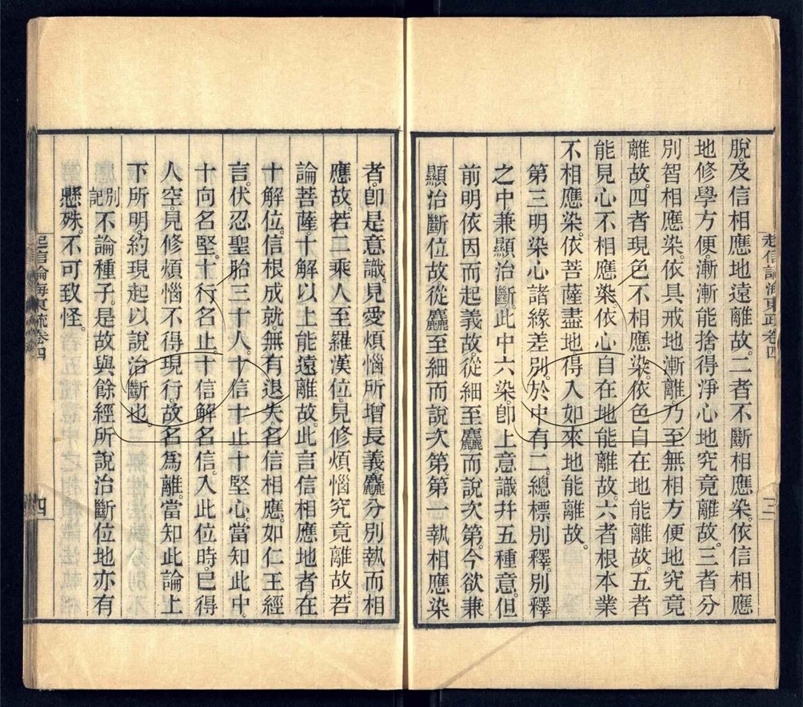 脫及信相應地遠離故。二者不斷相應染。依信相應
地修學方便。漸漸能捨得淨心地究竟離故。三者分
別智相應染。依具戒地漸離乃至無相方便地究竟
離故。四者現色不相應染。依色自在地能離故。五者
能見心不相應染。依心自在地能離故。六者根本業
不相應染。依菩薩盡地得入如來地能離故。
第三明染心諸緣差別。於中有二。總標別釋。別釋
之中兼顯治斷。此中六染卽上意識幷五種意。但
前明依因而起義故。從細至麤而說次第。今欲兼
顯治斷位故。從麤至細而說次第。第一執相應染
起信論海東疏卷四
三
者。卽是意識。見愛煩惱所增長義。麤分別執而相
應故。若二乘人至羅漢位。見修煩惱究竟離故。若
論菩薩十解以上能遠離故。此言信相應地者。在
十解位。信根成就。無有退失。名信相應。如仁王經
言。伏忍聖胎三十人。十信十止十堅心。當知此中。
十向名堅。十行名止。十信解名信。入此位時。已得
人空。見修煩惱不得現行。故名爲離。當知此論上
下所明。約現起以說治斷也。
別記不論種子。是故與餘經所說治斷位地亦有
懸殊。不可致怪。
起信論海東疏卷四
四